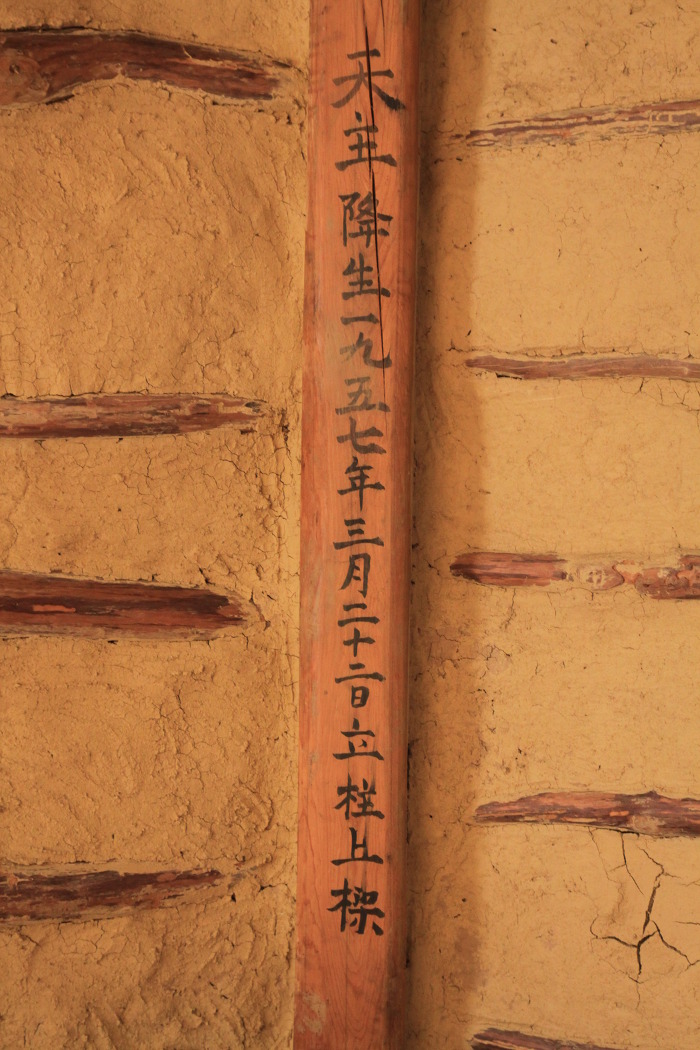 天主降生一九五七年三月二十二日立柱上樑